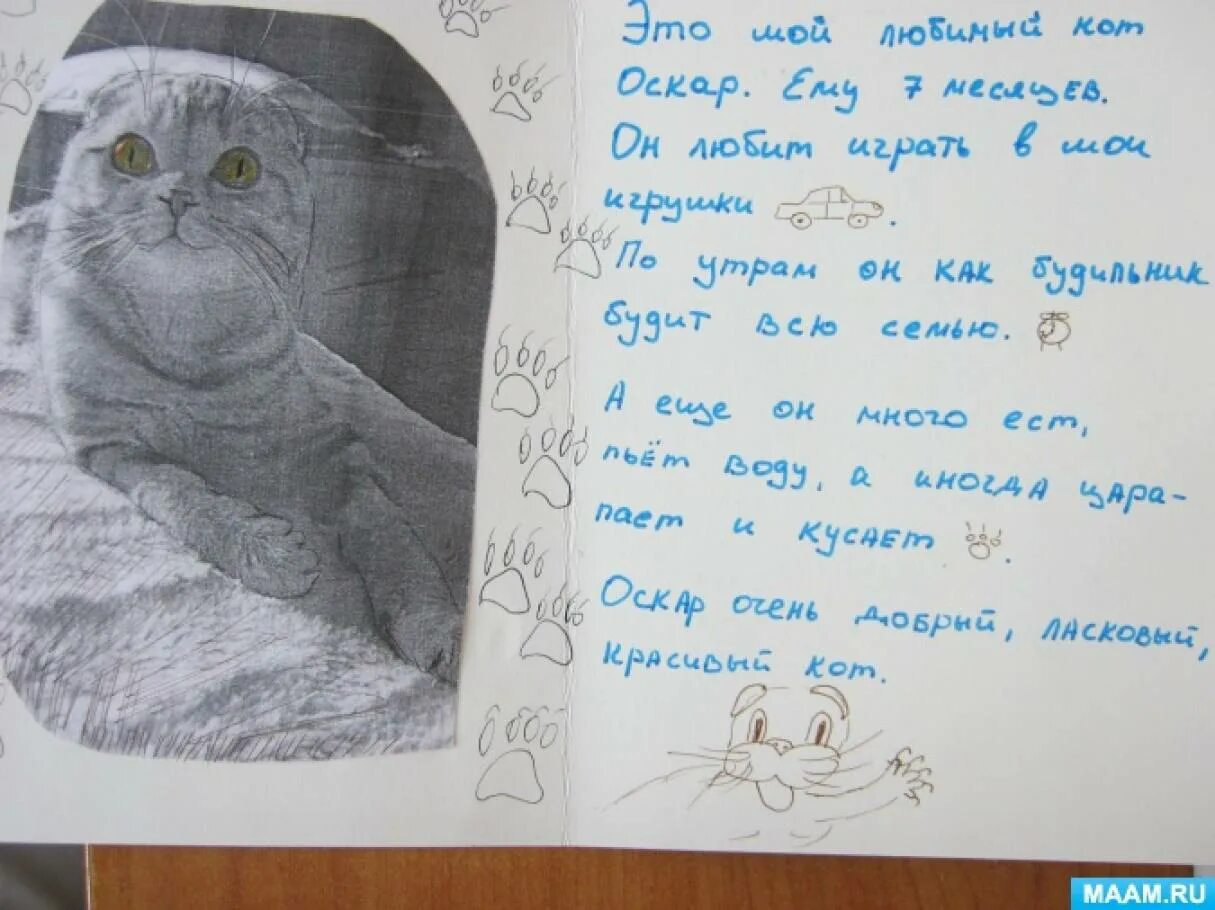 Это мой любимый кот
Оскар. Ему 7 месяцев.
Он любит играть в мои
игрушки .
По утрам он как будильник
будит всю семью.
А еще он много ест,
пьёт воду, а иногда цара-
пает и кусает .
Оскар очень добрый, ласковый,
красивый кот.
MAAM.RU